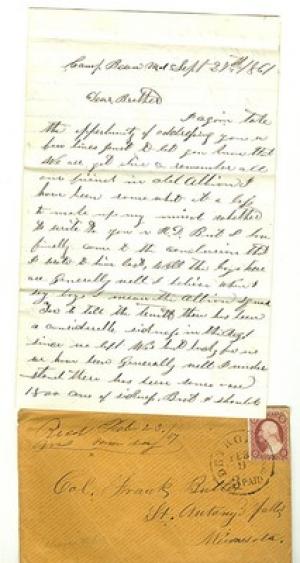 Camp Md Sept 28th 1861
Dear Brother
I again take
the opportunity of addressing you a
few lines just to let you know that
we are yet alive & remember all
our friends in old Albion I
have been somewhat at a loss
to make up my mind whether
to write to you or But I have
finally come to the conclusion that
I wrote to him last, well the boys here
are Generally well I believe when I
say boys I mean the Albion
to tell the truth there has been
a considerable sickness in the Regt
since we left but
we have been Generally well I under
stand there has been some over
cases of But I should
Recd Feb 23
PAID
Col. Frank
St. Antony falls
Minnesota.